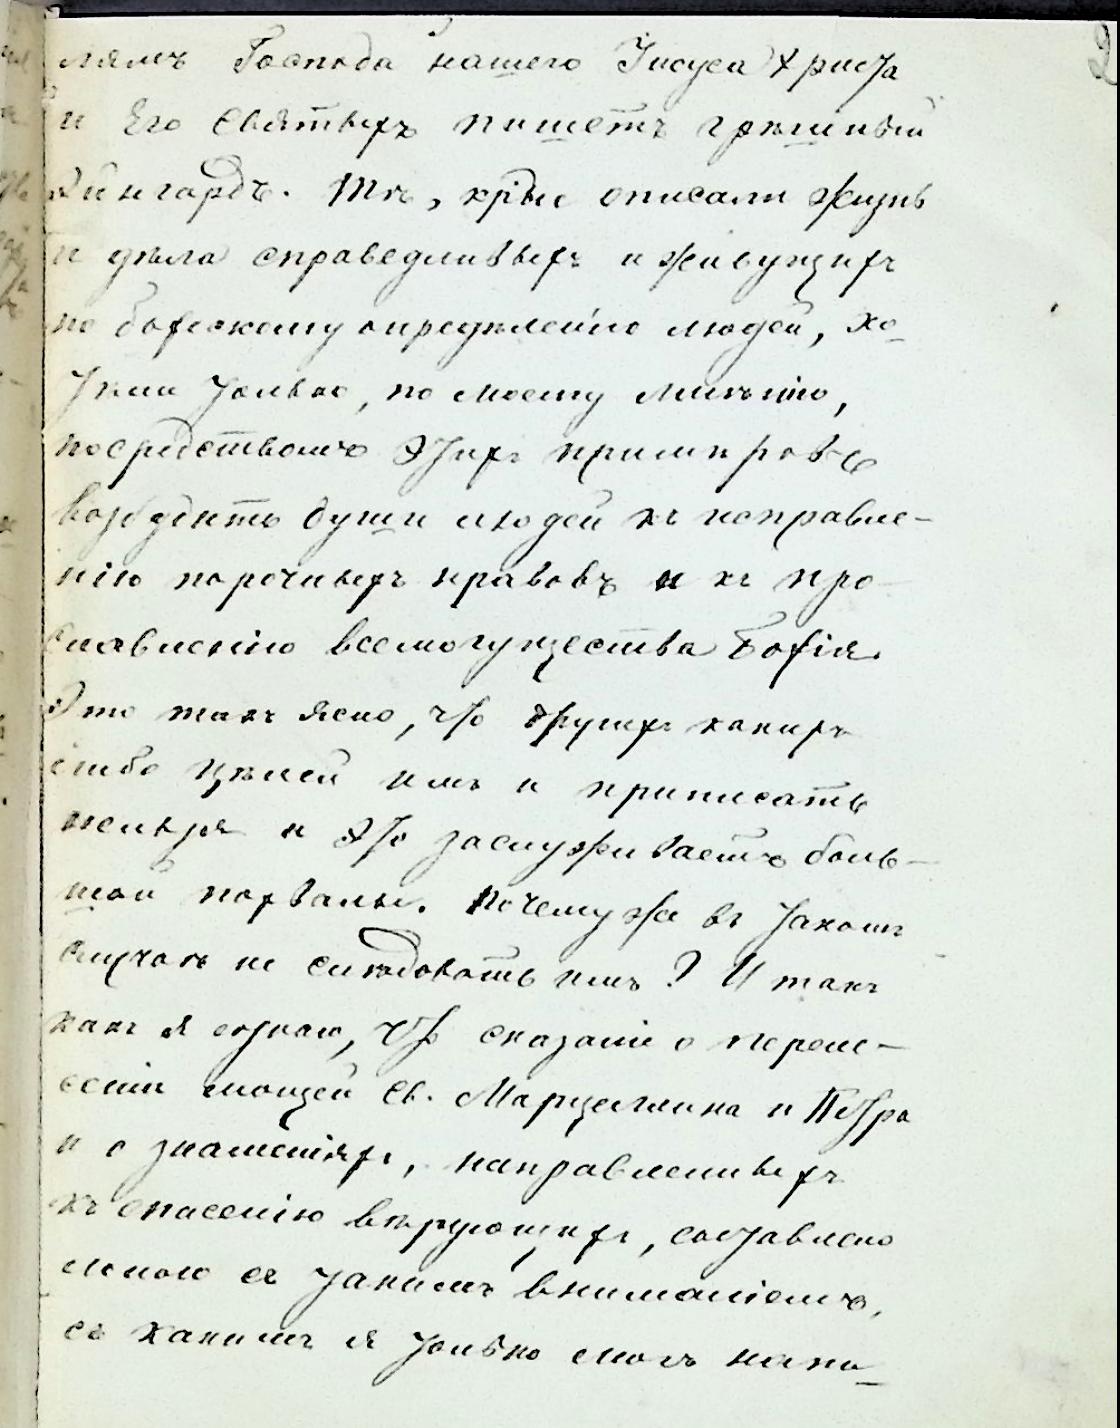 лямъ Господа нашего Іисуса Христа
и Его Святыхъ пишетъ грѣшный
Эйнгардъ. Тѣ, крые описали жизнь
и дѣла справедливыхъ и живущихъ
по божескому опредѣленію людей, хо-
тѣли только, по моему мнѣнію,
посредствомъ этихъ примѣровъ
возбудить души людей къ исправле-
нію порочныхъ нравовъ и къ про-
славленію всемогущества Божія.
Это такъ ясно, что другихъ какихъ
либо цѣлей имъ и приписать
нельзя и это заслуживаетъ боль-
шой похвалы. Почему же въ такомъ
случаѣ не слѣдовать имъ? И такъ
какъ я сознаю, что сказаніе о перене-
сеніи мощей Св. Марцеллина и Петра
и о знаменіяхъ, направленныхъ
къ спасенію вѣрующихъ, составлено
мною съ такимъ вниманіемъ,
съ какимъ я только могъ напи-